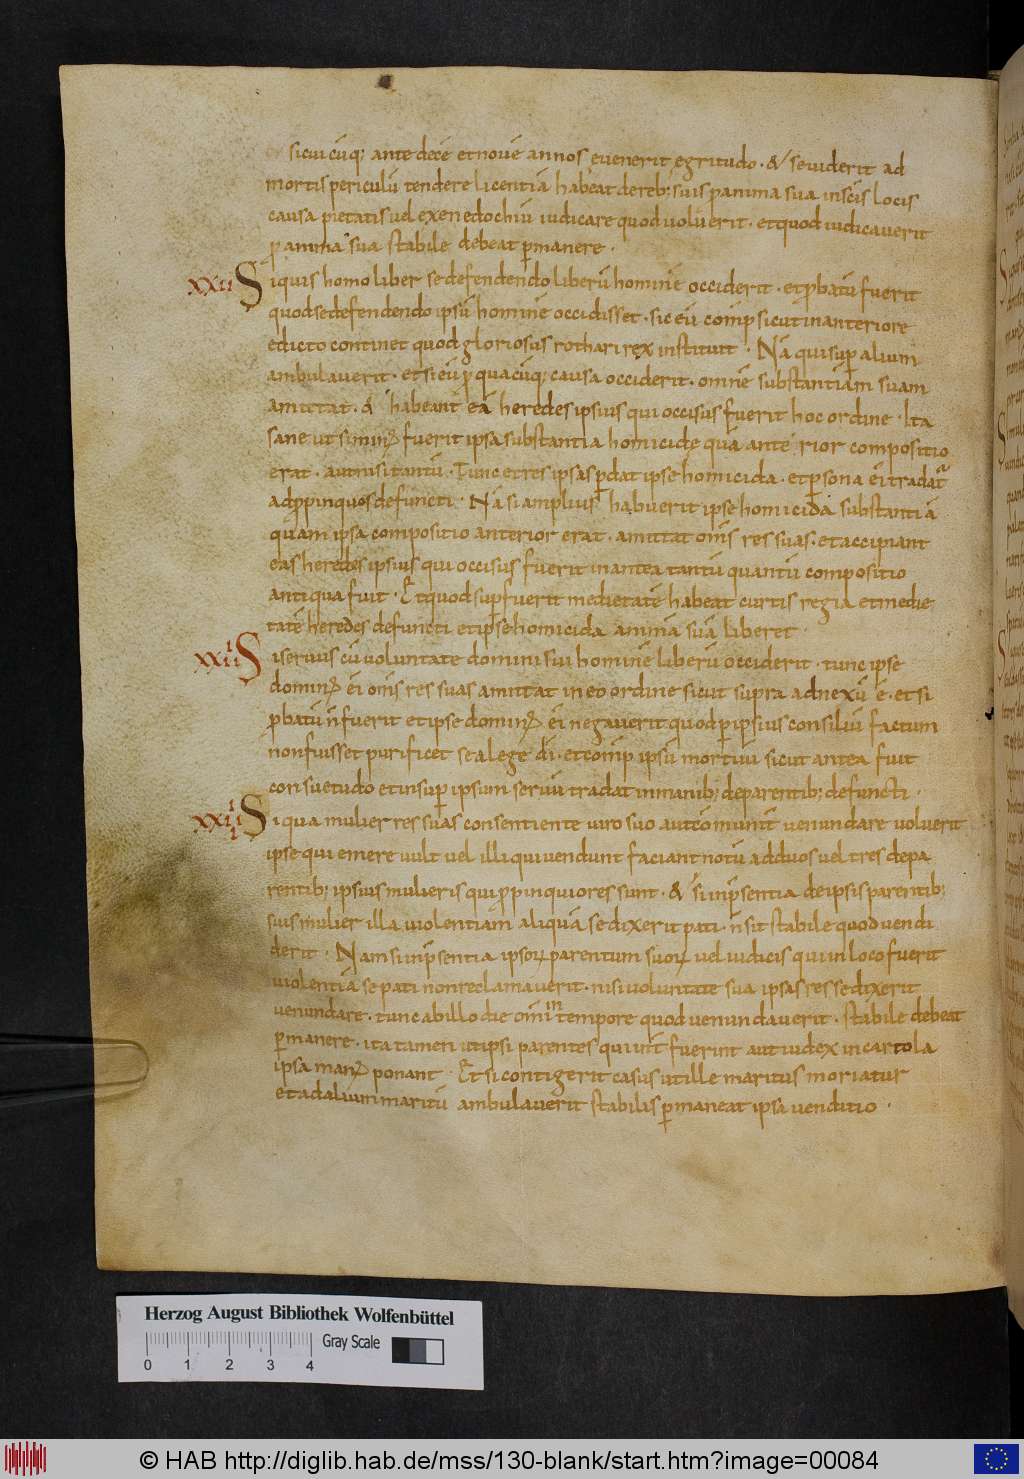 si cui cūq; ante decē et novē annos evenerit egritudo · & se viderit ad
mortis periculū tendere licentiā habeat de reb; suis pro anima sua in scīs locis
causa pietatis vel exenedochiū iudicare quod voluerit · et quod iudicaverit
ꝓ anima sua stabile debeat ꝑmanere ·
XXII Si quis homo liber se defendendo liberū hominē occiderit · et ꝓbatū fuerit
quod se defendendo ipsū hominē occidisset · sic eū comp̄ sicut in anteriore
edicto continet quod gloriosus rothari rex instituit · Nā qui suꝑ alium
ambulaverit · et si eū ꝓ quacūq; causa occiderit · omnē substantiam suam
amittat · & habeant eā heredes ipsius qui occisus fuerit hoc ordine · Ita
sane ut si minꝰ fuerit ipsa substantia homicidę quā anterior compositio
erat · aut nisi tantū · Tunc et res ipsas ꝑdat ipse homicida · et ꝑsona ei tradatᷣ
ad ꝓpinquos defuncti · Nā si amplius habuerit ipse homicida substantiā
quam ipsa compositio anterior erat · amittat om̄s res suas · et accipiant
eas heredes ipsius qui occisus fuerit in antea tantū quantū compositio
antiqua fuit · Et quod suꝑfuerit medietatē habeat curtis regia et medie
tatē heredes defuncti et ipse homicida animā suā liberet ·
XXIII Si servus cū voluntate domini sui hominē liberū occiderit · tunc ipse
dominꝰ ei om̄s res suas amittat in eo ordine sicut supra adnexū ē · et si
ꝓbatū n̄ fuerit et ipse dominꝰ ei negaverit quod ꝑ ipsius consiliū factum
non fuisset purificet se a lege dī · et comp̄ ipsū mortuū sicut antea fuit
consuetudo et insuꝑ ipsum servū tradat in manib; de parentib; defuncti ·
XXIIII Si qua mulier res suas consentiente viro suo aut cōmunit̄ venundare voluerit
ipse qui emere vult vel illi qui vendunt faciant notū ad duos vel tres de pa
rentib; ipsius mulieris qui ꝓpinquiores sunt · & si in p̄sentia de ipsis parentib;
suis mulier illa violentiam aliquā se dixerit pati · n̄ sit stabile quod vendi
derit · Nam si in p̄sentia ipsoꝝ parentum suoꝝ vel iudicis qui in loco fuerit
violentiā se pati non reclamaverit · nisi voluntate sua ipsas res se dixerit
venundare · tunc ab illo die om̄i in tempore quod venundaverit · stabile debeat
ꝑmanere · ita tamen ut ipsi parentes qui int̄fuerint aut iudex in cartola
ipsa manꝰ ponant · Et si contigerit casus ut ille maritus moriatur
et ad alium maritū ambulaverit stabilis ꝑmaneat ipsa venditio ·
Herzog August Bibliothek Wolfenbüttel
0 1 2 3 4 Gray Scale
© HAB http://diglib.hab.de/mss/130-blank/start.htm?image=00084